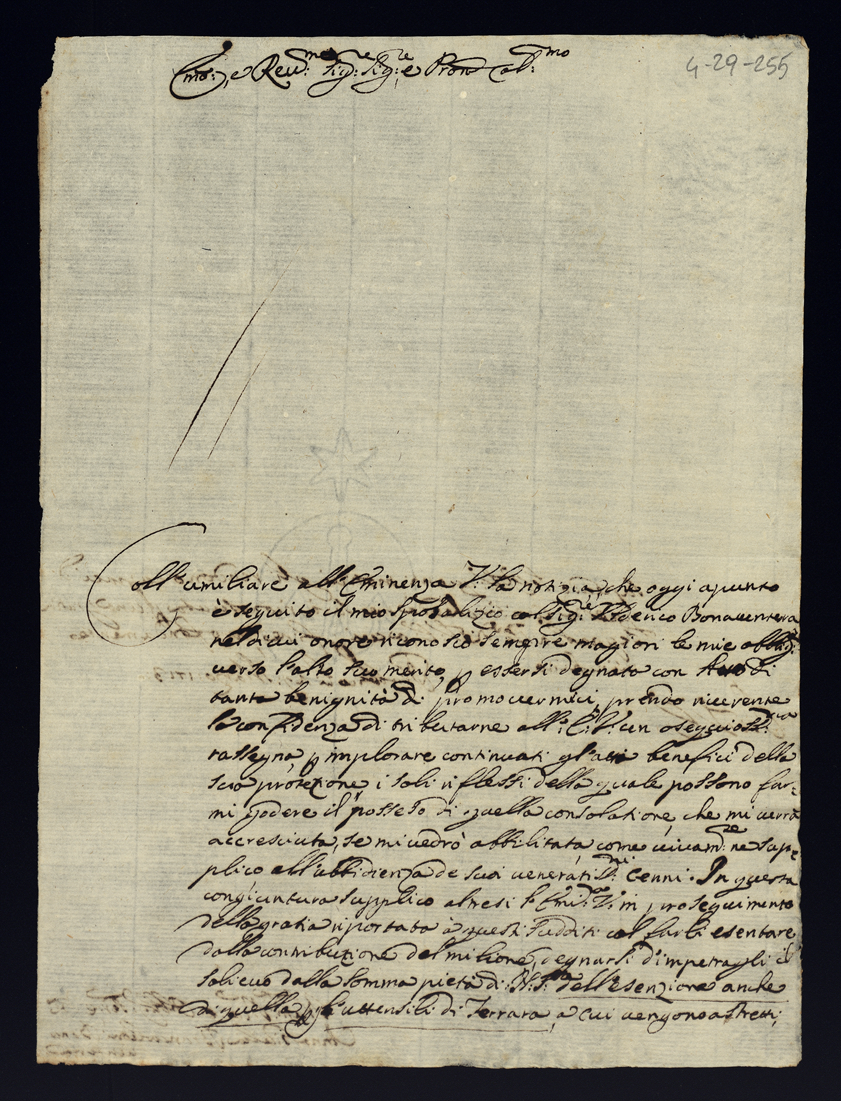 4-29-255
Em:mo, e Reu:mo Sig:re Sig:re e Pron Col:mo
Coll'umiliare all'Eminenza V: la notizia, che oggi apunto
è seguito il mio sposalizio col Sig:re Federico Bonauentura
nel di cui onore riconosco sempre magiori le mie obblig:
uerso l'alto suo merito, p essersi degnata con di
tanta benignità di promouermici, prendo riuerente
la confidenza di tributarne all'E: V: un ossequio
rassegna, p implorare continuati gl'atti benefici della
sua protezione, i soli riflessi della quale possono far=
mi godere il possesso di quella consolatione, che mi uerrà
accresciuta, se mi uedrò abbilitata come uiuam:te ne sup=
plico all'ubbidienza de suoi uenerati:mi Cenni. In questa
congiuntura supplico altresi l'Emi:za V: in proseguimento
della gratia riportata à questi sudditi col farli esentare
dalla contributione del milione, degnarsi d'impetragli il
solieuo dalla somma pietà di N: S: dell'esenzione anche
da quella p gl'uttensili di Ferrara, a cui uengono astretti,